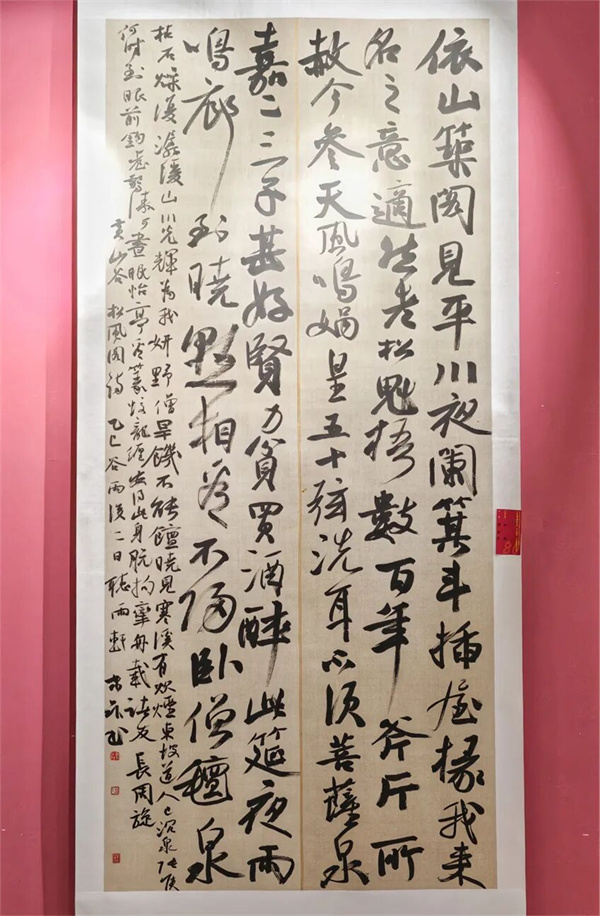 依山築阁見平川夜闌箕斗插屋椽我来
名之意適然老松魁梧數百年斧斤所
赦今参天風鳴媧皇五十弦洗耳不須菩薩泉
嘉二三子甚好賢力貧買酒醉此筵夜雨
鳴廊到曉懸相看不歸卧僧氈泉
枯石燥復潺湲山川光輝為我妍野僧旱饑不能饘曉見寒溪有炊煙東坡道人已沉泉張侯
何時到眼前釣臺驚濤可晝眠怡亭看篆蛟龍纏安得此身脱拘攣舟載諸友長周旋
黄山谷松風阁詩乙巳谷雨後二日聽雨軒